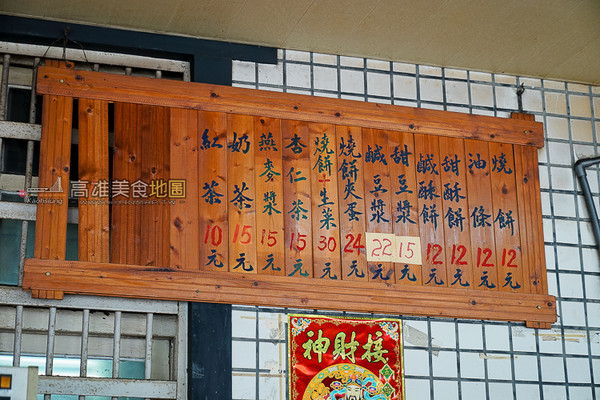 燒餅 12元
油條 12元
甜酥餅 12元
鹹酥餅 12元
甜豆漿 15元
鹹豆漿 22元
燒餅夾蛋 24元
燒餅+生菜 30元
杏仁茶 15元
燕麥漿 15元
奶茶 15元
紅茶 10元
接財神
高雄美食地圖